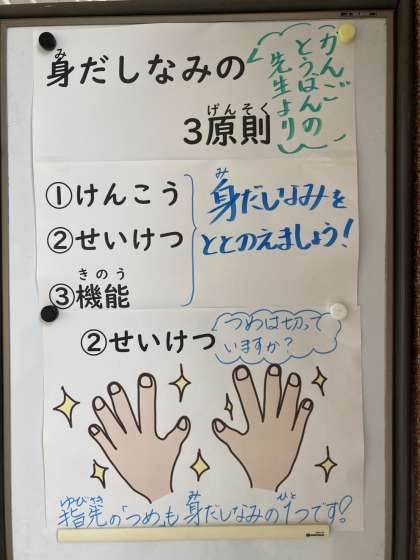 身だしなみの
3原則
かんご
とうばんの
先生より
①けんこう
②せいけつ
③機能
身だしなみを
ととのえましょう!
②せいけつ
つめは切って
いますか?
指先の「つめ」も身だしなみの1つです!